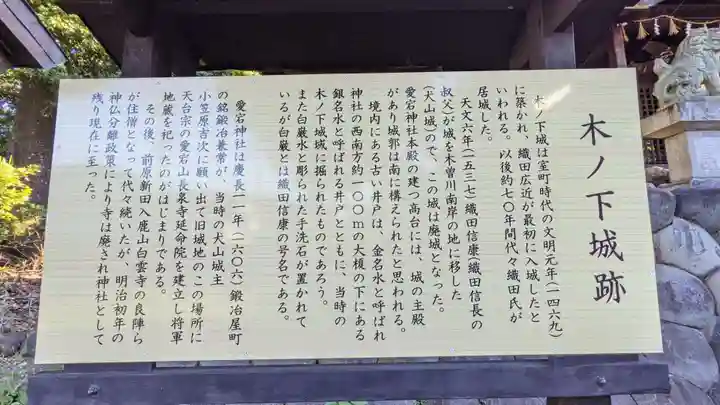 木ノ下城跡
木ノ下城は室町時代の文明元年(一四六九)
に築かれ、織田広近が最初に入城したと
いわれる。以後約七〇年間代々織田氏が
居城した。
天文六年(一五三七)織田信康(織田信長の
叔父)が城を木曽川南岸の地に移した
(犬山城)ので、この城は廃城となった。
愛宕神社本殿の建つ高台には、城の主殿
があり城郭は南に構えられたと思われる。
境内にある古い井戸は、金名水と呼ばれ
神社の西南方約一〇〇mの大榎の下にある
銀名水と呼ばれる井戸とともに、当時の
木ノ下城城に掘られたものであろう。
また白厳水と彫られた手洗石が置かれて
いるが白厳とは織田信康の号名である。
愛宕神社は慶長一一年(一六〇六)鍛冶屋町
の銘鍛冶兼常が、当時の犬山城主
小笠原吉次に願い出て旧城地のこの場所に
天台宗の愛宕山長泉寺延命院を建立し将軍
地蔵を祀ったのがはじまりである。
その後、前原新田入鹿山白雲寺の良陣ら
が住僧となって代々続いたが、明治初年の
神仏分離政策により寺は廃され神社として
残り現在に至った。